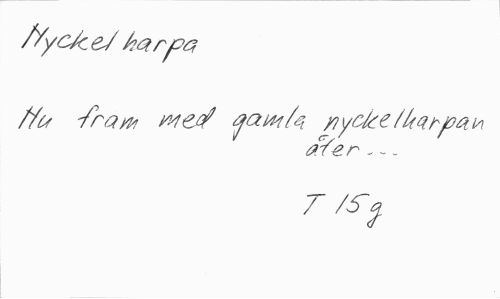 Nyckelharpa
Nu fram med gamla nyckelharpan
åter...
T 15g